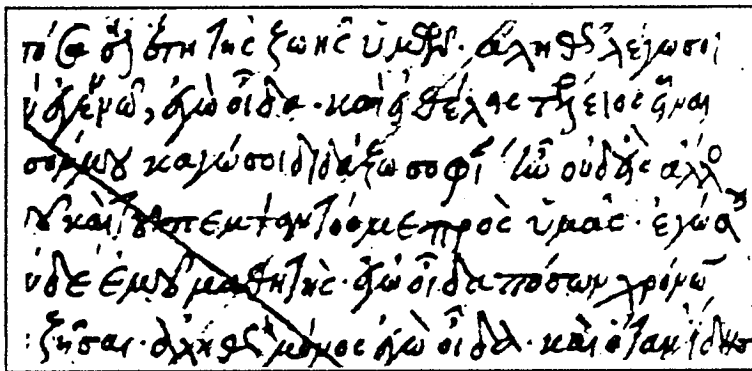 ἔτη τῆς ζωῆς ὑμῶν· ἀληθῶς λέγω σοι
ἐγὼ οἶδα· καὶ εἰ θέλεις τέλειος εἶναι
κἀγώ σοι διδάξω σοφίαν ἣν οὐδεὶς ἄλλος
καὶ τοῦ πέμψαντός με πρὸς ὑμᾶς· ἐγὼ
ὺ δὲ ἐμοῦ μαθητής· ἐγὼ οἶδα πόσων χρόνων
ζῆσαι· ἀληθῶς μόνος ἐγὼ οἶδα· καὶ ὅταν ἴδῃς